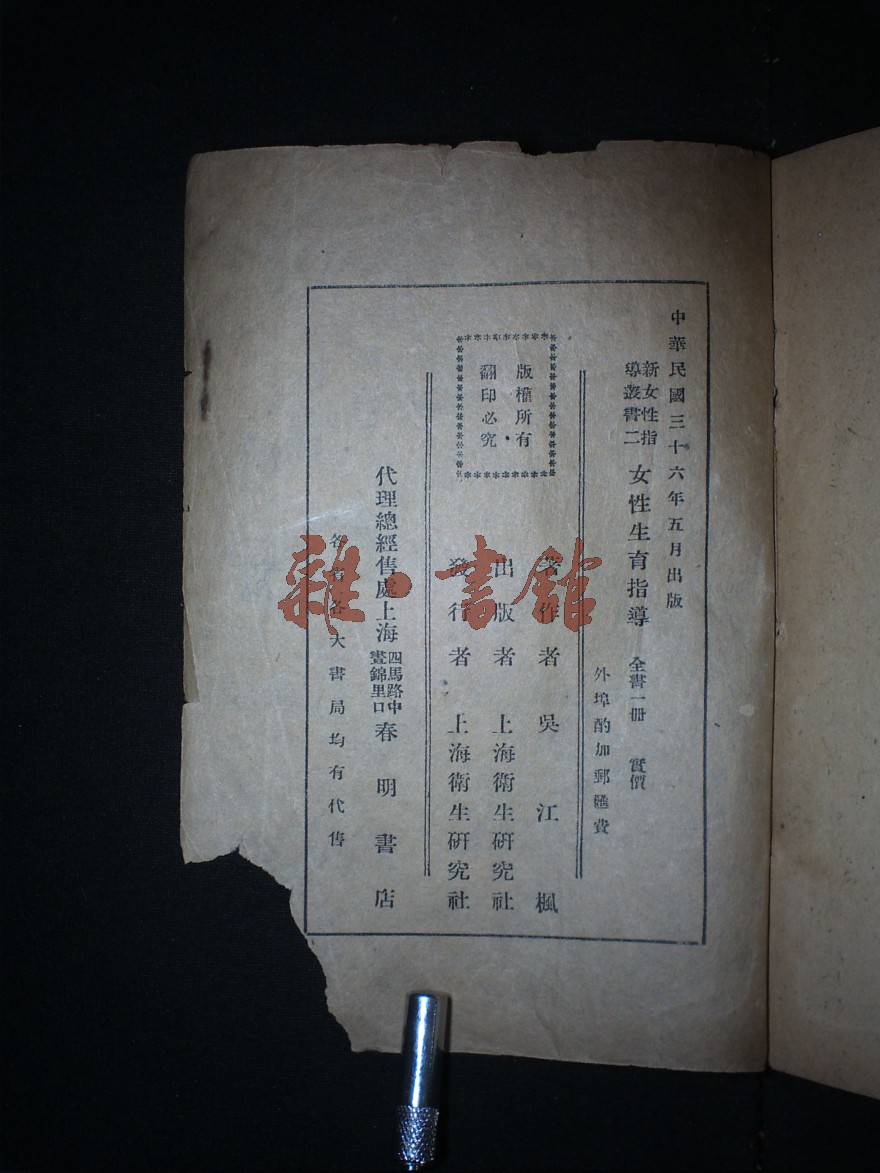 中華民國三十六年五月出版
新女性指導叢書二 女性生育指導 全書一册 實價
外埠酌加郵匯費
版權所有
翻印必究
著作者 吳江楓
出版者 上海衛生研究社
發行者 上海衛生研究社
代理總經售處上海四馬路中晝錦里口春明書店
各省各大書局均有代售
雜·書館